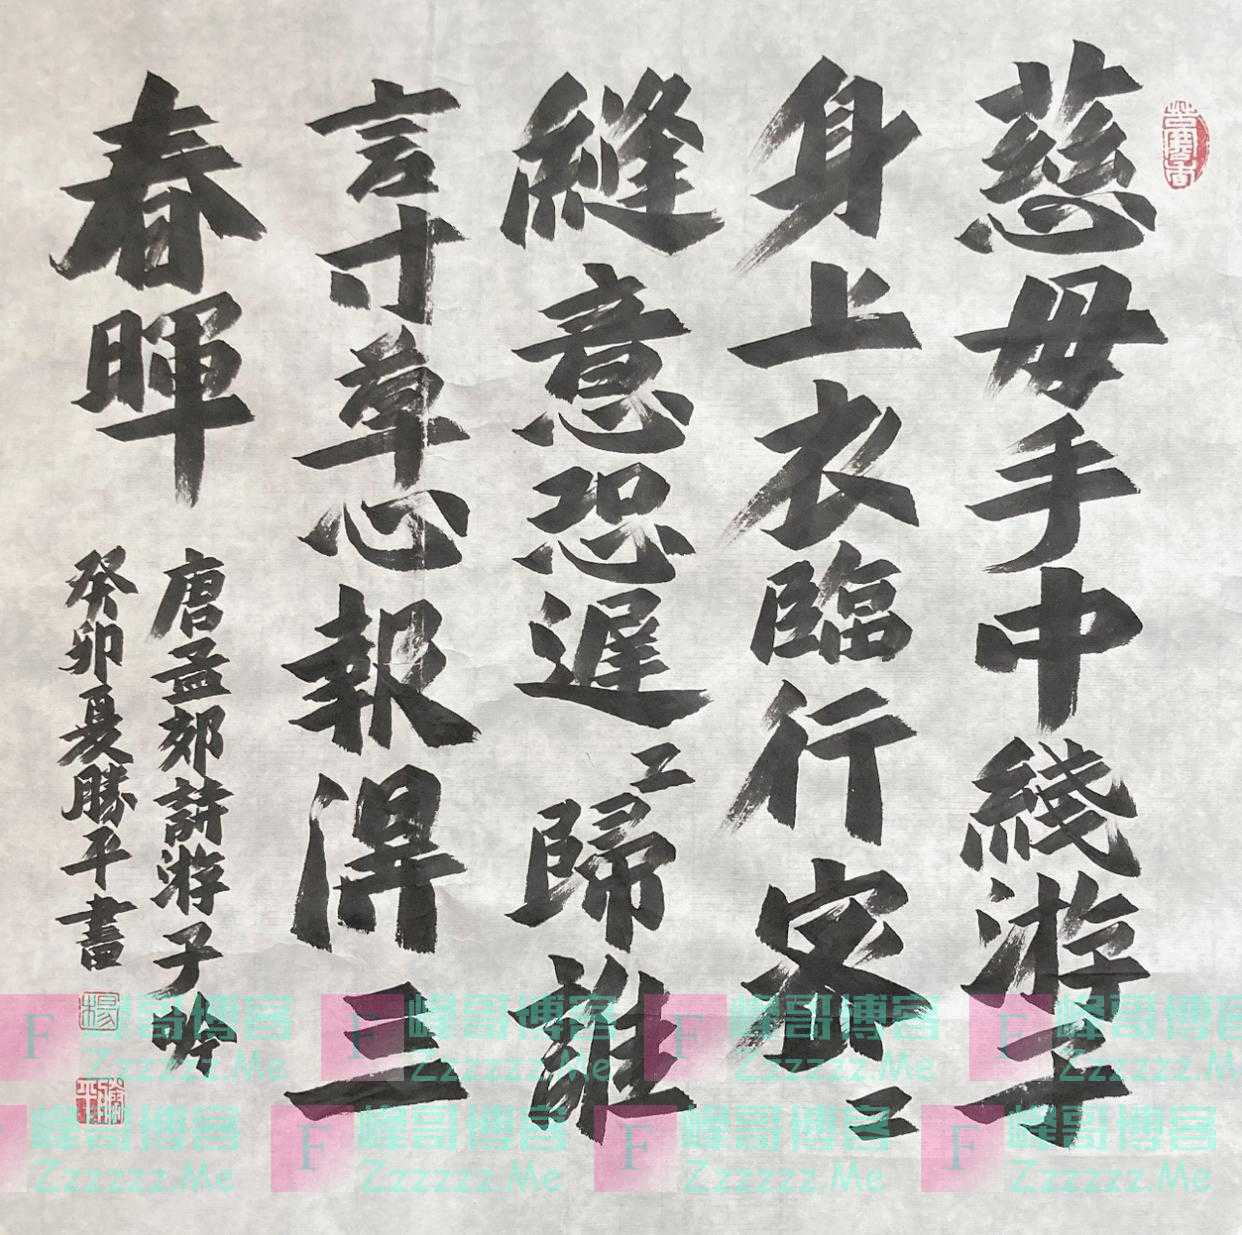 慈母手中綫游子
身上衣臨行密〻
縫意恐遲〻歸誰
言寸草心報得三
春暉
唐孟郊詩游子吟
癸卯夏勝平書
楊
勝平
F 峰哥博客
Zzzzzz.Me
F 峰哥博客
Zzzzzz.Me
F 峰哥博客
Zzzzzz.Me
F 峰哥博客
Zzzzzz.Me
峰哥博客
Zzzzzz.Me
F 峰哥博客
Zzzzzz.Me
F 峰哥博客
Zzzzzz.Me
F 峰哥博客
Zzzzzz.Me